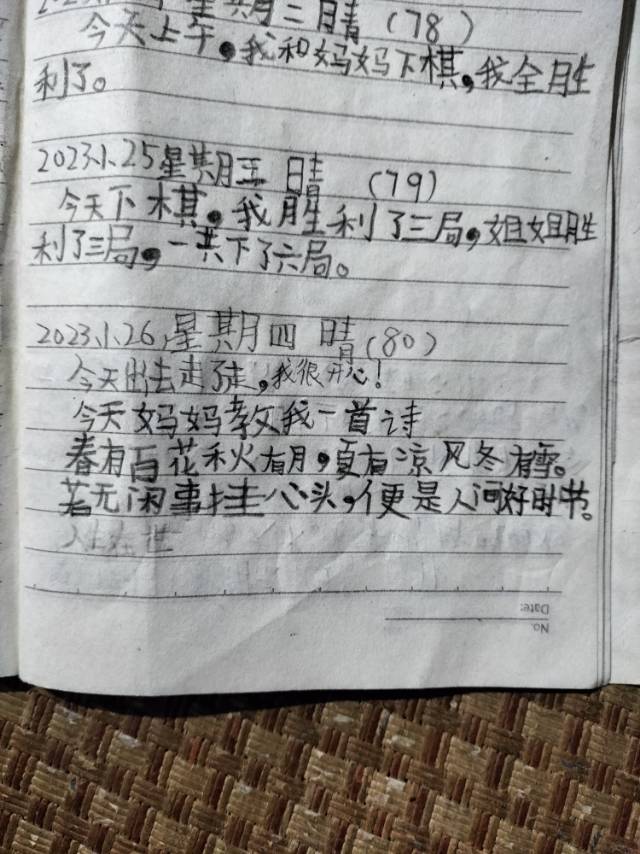 星期二 晴 (78)
今天上午，我和妈妈下棋，我全胜
利了。
2023.1.25 星期五 晴 (79)
今天下棋，我胜利了三局，姐姐胜
利了三局，一共下了六局。
2023.1.26，星期四 晴 (80)
今天出去走了走，我很开心！
今天妈妈教我一首诗
春有百花秋有月，夏有凉风冬有雪。
若无闲事挂心头，便是人间好时节。
人生在世
No.
Date: